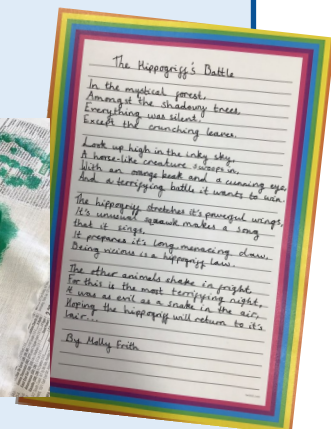 The Hippogriff's Battle
In the mystical forest,
Amongst the shadowy trees,
Everything was silent,
Except the crunching leaves.
Look up high in the inky sky,
A horse-like creature swoops in,
With an orange beak and a cunning eye,
And a terrifying battle it wants to win.
The hippogriff stretches it's powerful wings,
It's unusual squawk makes a song
that it sings.
It prepares it's long menacing claw,
Being vicious is a hippogriff law.
The other animals shake in fright,
For this is the most terrifying night,
It was as evil as a snake in the air,
Hoping the hippogriff will return to it's
lair...
By Molly Frith